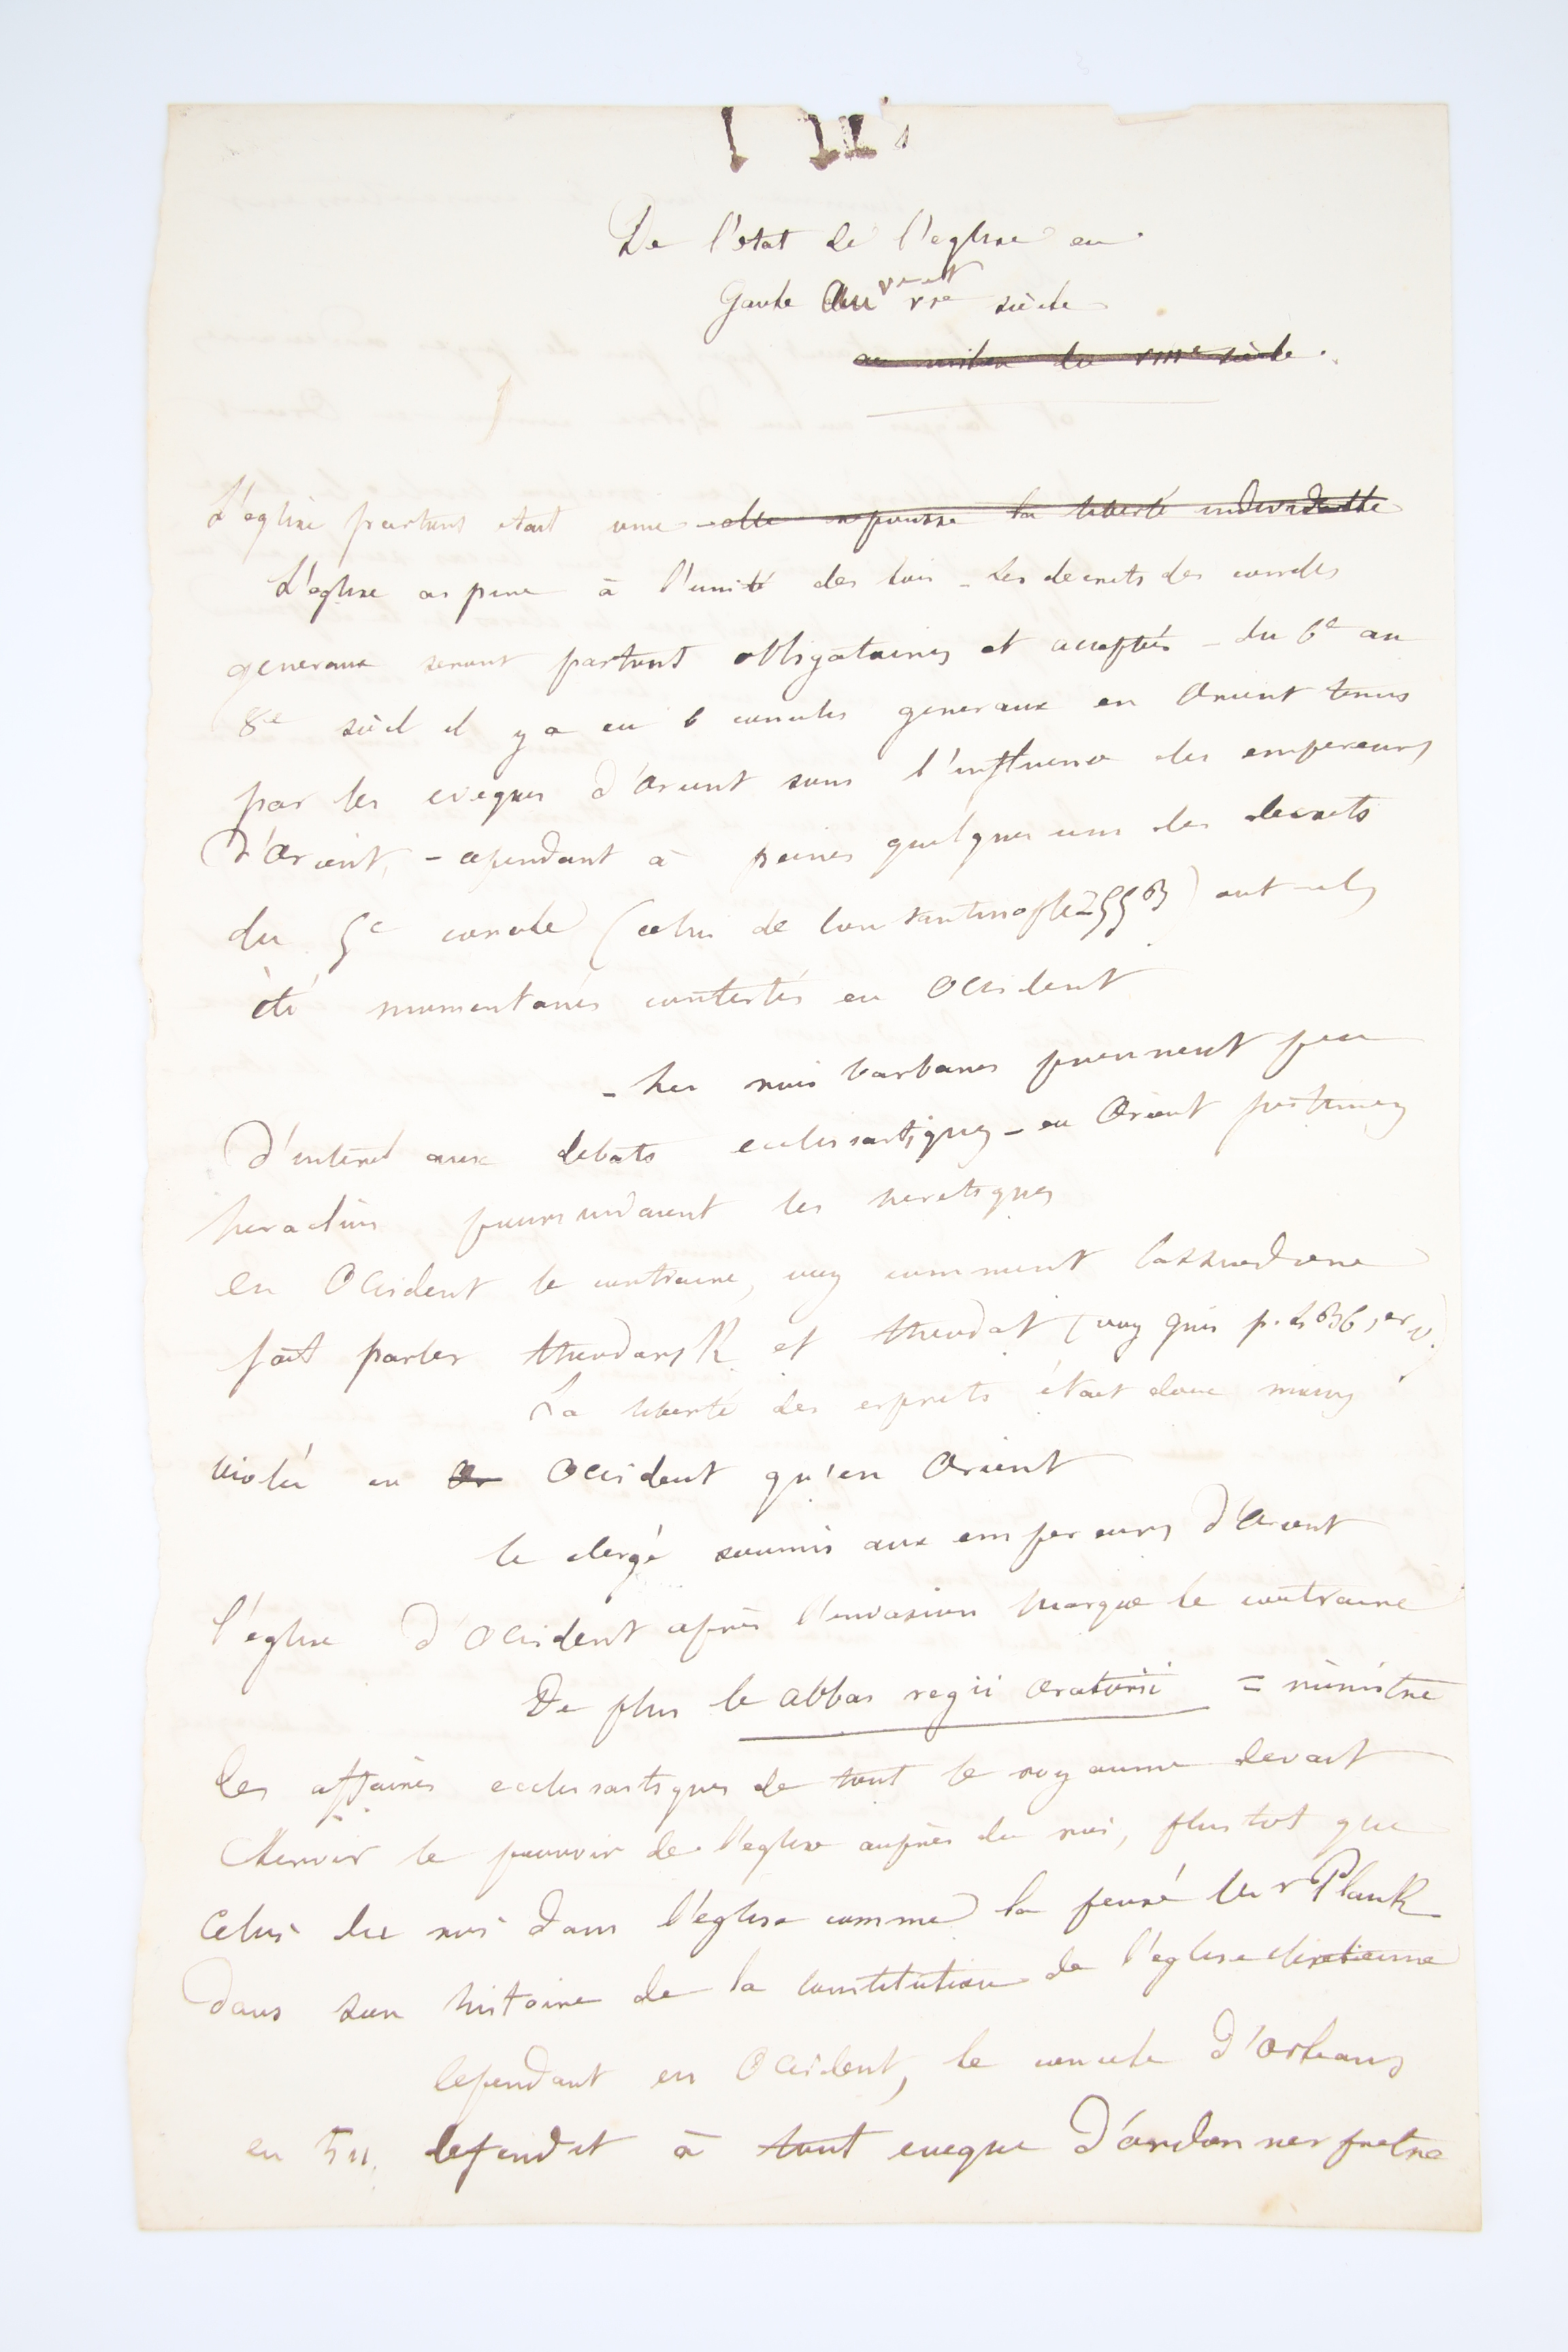 De l'état de l'eglise en
Gaule au Ve et VIe siècle
au milieu du VIIIe siècle.
L'eglise partout etait une - elle repousse la liberté individuelle
L'eglise aspire à l'unité des lois - les decrets des conciles
generaux seront partout obligatoires et acceptés - du 6e au
8e siècl il y a eu 6 conciles generaux en Orient tenus
par les eveques d'Orient sous l'influence des empereurs
d'Orient, - cependant à peines quelques uns des decrets
du 5e concile (celui de Constantinople 553) ont-ils
été momentanés contestés en Occident
- Les rois barbares prennent peu
d'interêt aux debats ecclesiastiques - en Orient justinien
heraclius poursuivaient les heretiques
en Occident le contraire, voy comment Cassiodore
fait parler theodorik et theodat (voy guis p.
La liberté des esprits était donc moins
violée en Or Occident qu'en Orient
le clergé soumis aux empereurs d'Orient
l'eglise d'Occident après l'invasion marque le contraire
De plus le abbas regii oratorii = ministre
des affaires ecclesiastiques de tout le royaume devait
servir le pouvoir de l'eglise auprès du roi, plustot que
celui du roi dans l'eglise comme la pensé Mr Plank
dans son histoire de la constitution de l'eglise chretienne
Cependant en Occident, le concile d'Orleans
en 511, defendit à tout eveque d'ordonner pretre